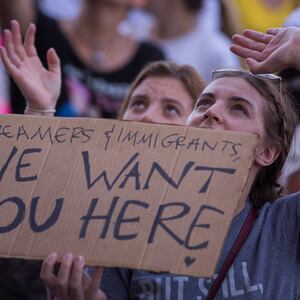 DREAMERS & IMMIGRANTS,
WE WANT
YOU HERE
BUT STILL,